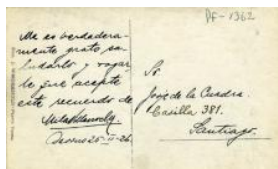 PF-1362
Me es verdadera-
mente grato sa-
ludarlo y rogar
le que acepte
este recuerdo de
25-II-26.
Sr
José de la Cuadra.
Casilla 381.
Santiago.